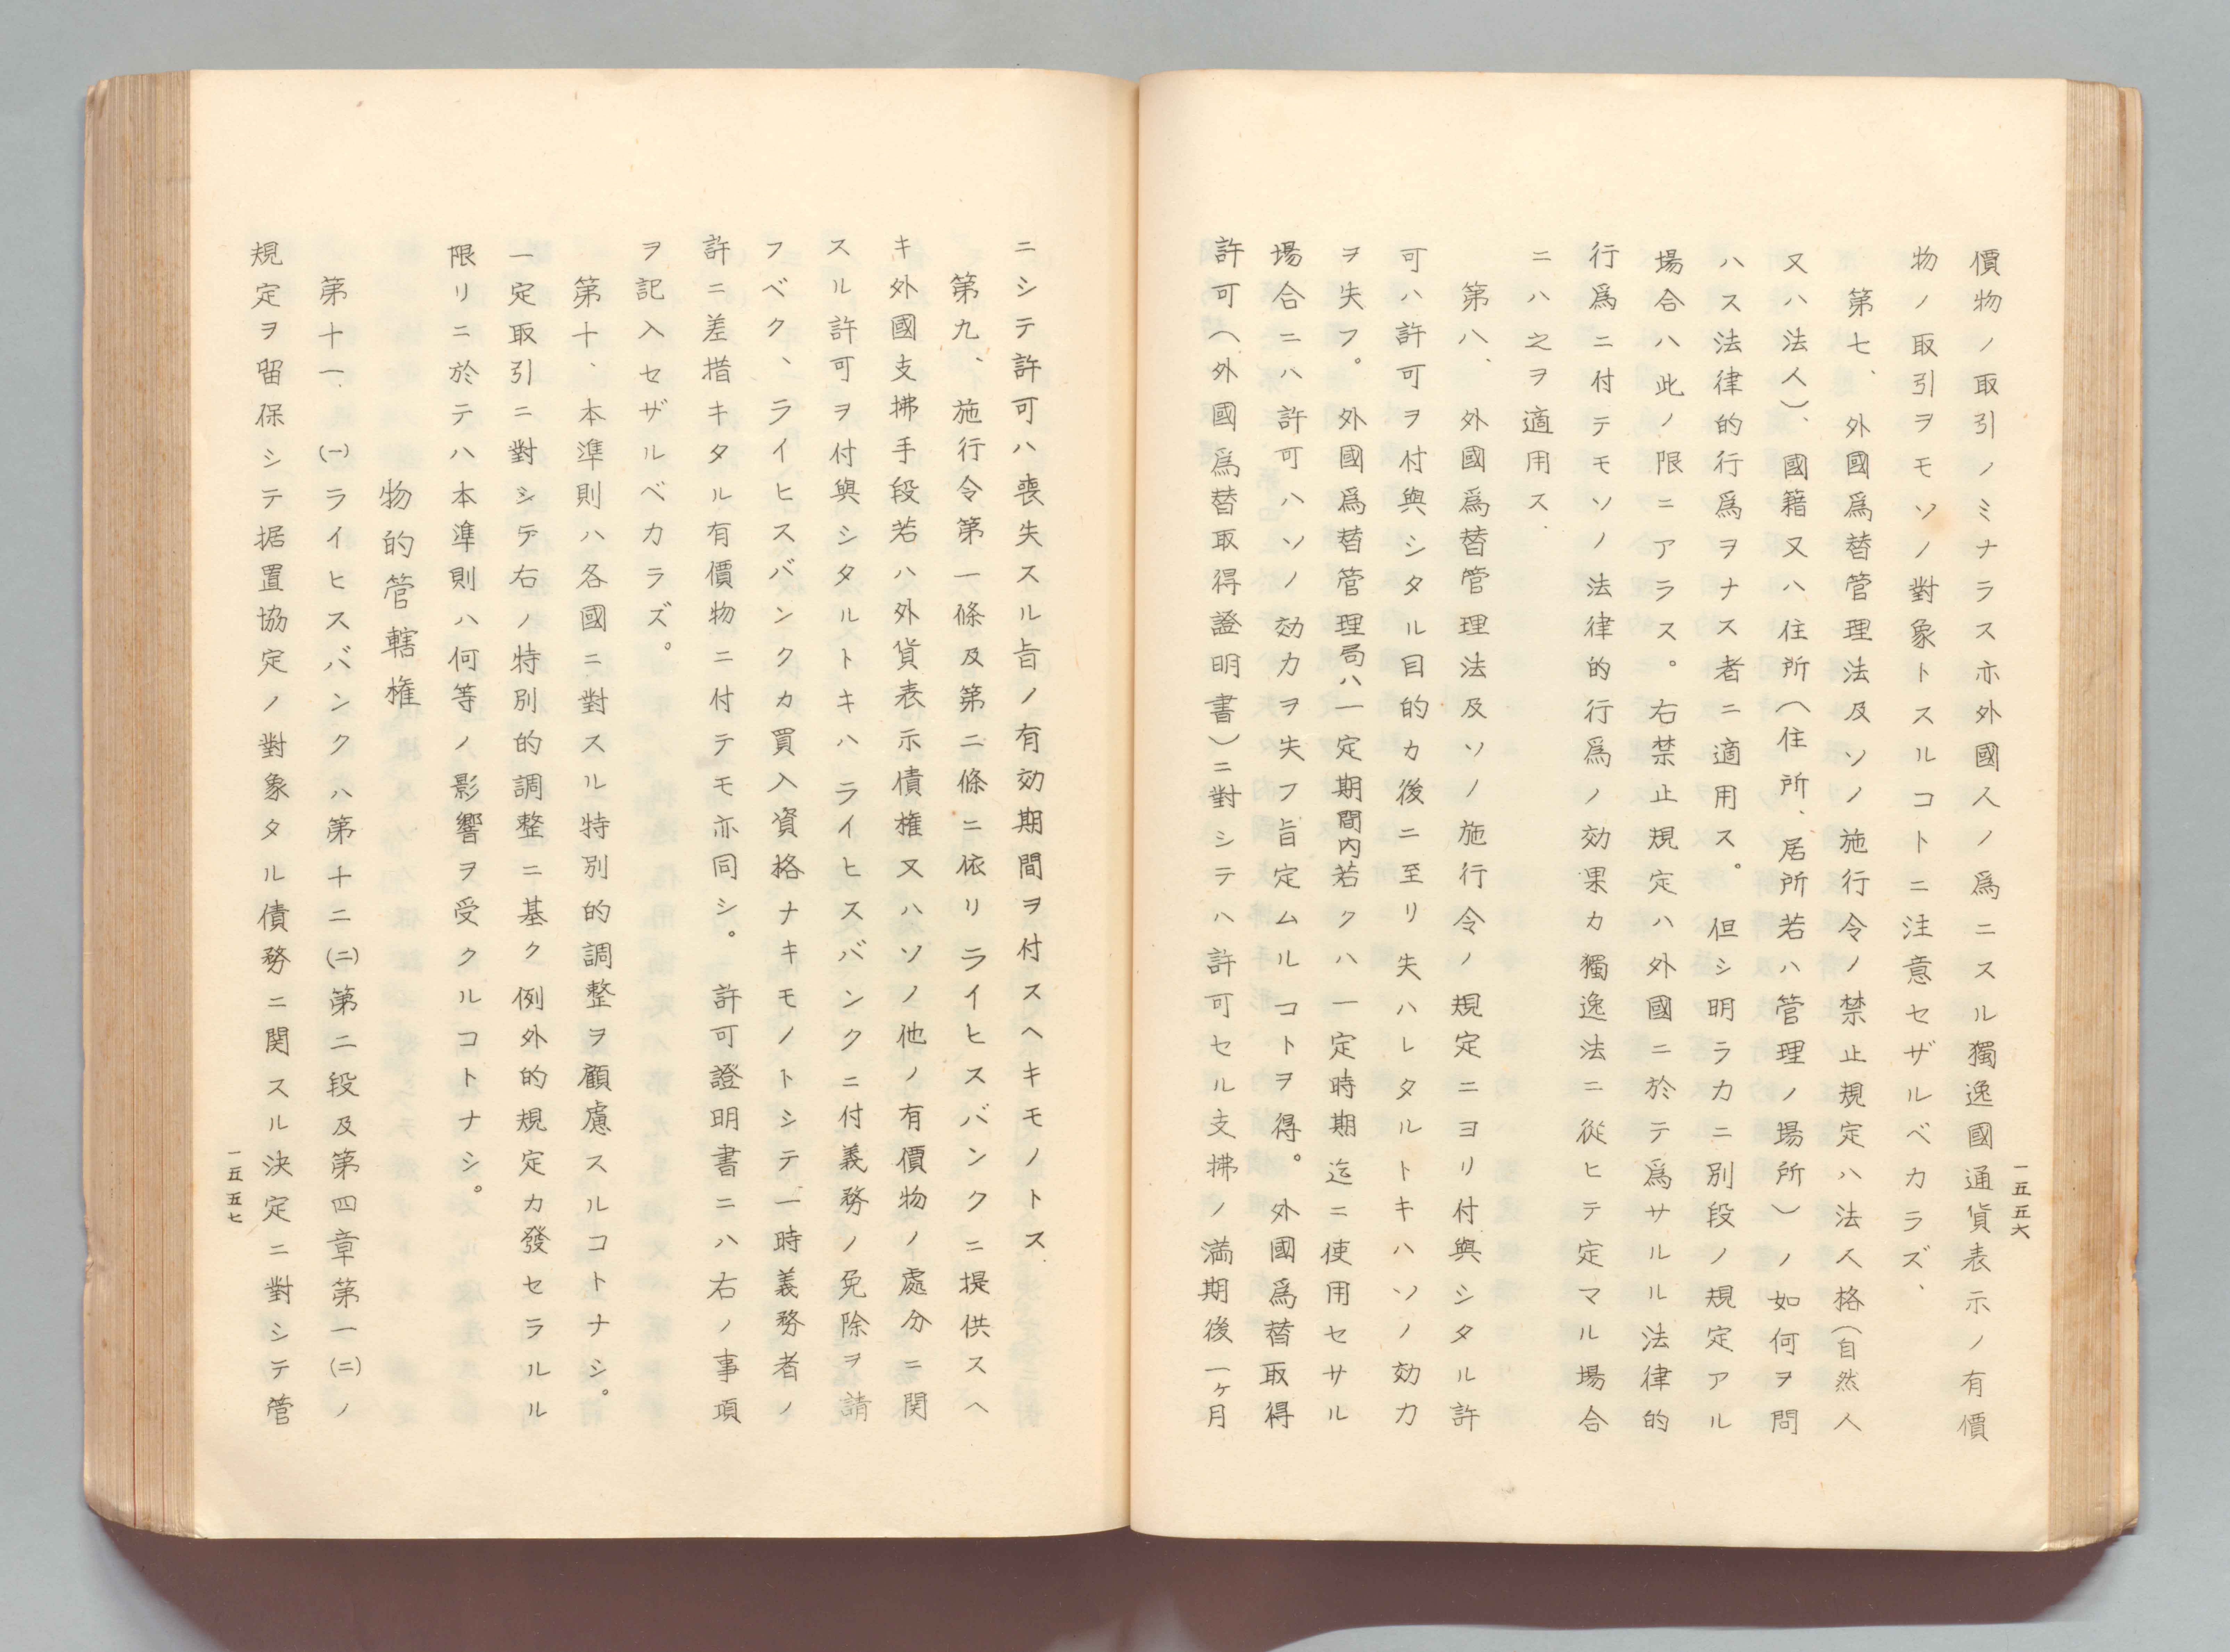 一五五六
價物ノ取引ノミナラス亦外國人ノ爲ニスル獨逸國通貨表示ノ有價
物ノ取引ヲモソノ對象トスルコトニ注意セザルベカラズ、
第七、外國爲替管理法及ソノ施行令ノ禁止規定ハ法人格（自然人
又ハ法人）、國籍又ハ住所（住所、居所若ハ管理ノ場所）ノ如何ヲ問
ハス法律的行爲ヲナス者ニ適用ス。但シ明ラカニ別段ノ規定アル
場合ハ此ノ限ニアラス。右禁止規定ハ外國ニ於テ爲サルル法律的
行爲ニ付テモソノ法律的行爲ノ効果カ獨逸法ニ從ヒテ定マル場合
ニハ之ヲ適用ス、
第八、外國爲替管理法及ソノ施行令ノ規定ニヨリ付與シタル許
可ハ許可ヲ付與シタル目的カ後ニ至リ失ハレタルトキハソノ効力
ヲ失フ。外國爲替管理局ハ一定期間内若クハ一定時期迄ニ使用セサル
場合ニハ許可ハソノ効力ヲ失フ旨定ムルコトヲ得。外國爲替取得
許可（外國爲替取得證明書）ニ對シテハ許可セル支拂ノ満期後一ヶ月
ニシテ許可ハ喪失スル旨ノ有効期間ヲ付スヘキモノトス、
第九、施行令第一條及第二條ニ依リライヒスバンクニ提供スヘ
キ外國支拂手段若ハ外貨表示債権又ハソノ他ノ有價物ノ處分ニ関
スル許可ヲ付與シタルトキハライヒスバンクニ付義務ノ免除ヲ請
フベク、ライヒスバンクカ買入資格ナキモノトシテ一時義務者ノ
許ニ差措キタル有價物ニ付テモ亦同シ。許可證明書ニハ右ノ事項
ヲ記入セザルベカラズ。
第十、本準則ハ各國ニ對スル特別的調整ヲ顧慮スルコトナシ。
一定取引ニ對シテ右ノ特別的調整ニ基ク例外的規定カ發セラルル
限リニ於テハ本準則ハ何等ノ影響ヲ受クルコトナシ。
物的管轄権
第十一、㈠ライヒスバンクハ第十二㈡第二段及第四章第一㈡ノ
規定ヲ留保シテ据置協定ノ對象タル債務ニ関スル決定ニ對シテ管
一五五七